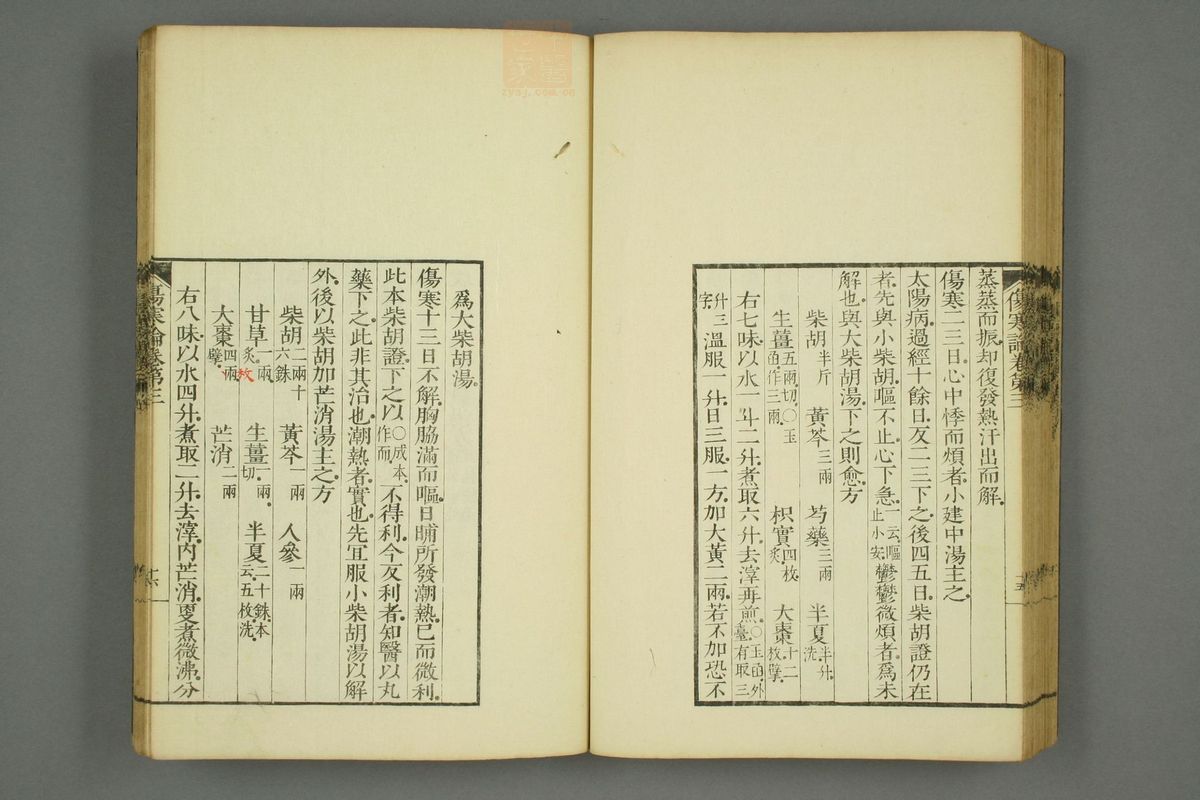 傷寒論卷第三
十五
蒸蒸而振却復發熱汗出而解
傷寒二三日心中悸而煩者小建中湯主之
太陽病過經十餘日反二三下之後四五日柴胡證仍在
者先與小柴胡嘔不止心下急一云嘔止小安鬱鬱微煩者爲未
解也與大柴胡湯下之則愈方
柴胡半斤 黃芩三兩 芍藥三兩 半夏半升洗
生薑五兩切〇玉函作三兩 枳實四枚炙 大棗十二枚擘
右七味以水一斗二升煮取六升去滓再煎〇玉函外臺有取三
升三字溫服一升日三服一方加大黃二兩若不加恐不
爲大柴胡湯
傷寒十三日不解胸脇滿而嘔日晡所發潮熱已而微利
此本柴胡證下之以〇成本作而不得利今反利者知醫以丸
藥下之此非其治也潮熱者實也先宜服小柴胡湯以解
外後以柴胡加芒消湯主之方
柴胡二兩十六銖 黃芩一兩 人參一兩
甘草一兩炙 生薑一兩切 半夏二十銖本云五枚洗
大棗四枚擘 芒消二兩
右八味以水四升煮取二升去滓內芒消更煮微沸分
傷寒論卷第三
十六
zysj.com.cn